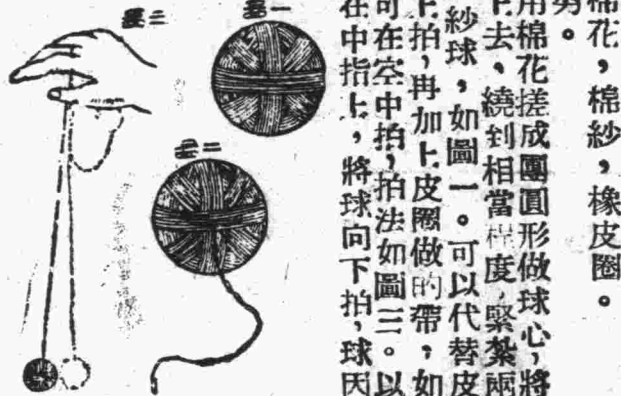 棉花，棉紗，橡皮圈。
用棉花搓成團圓形做球心，將
上去、繞到相當程度，緊紮兩
紗球，如圖一。可以代替皮
上拍，再加上皮圈做的帶，如
可在空中拍，拍法如圖三。以
在中指上，將球向下拍，球因
圖一
圖二
圖三